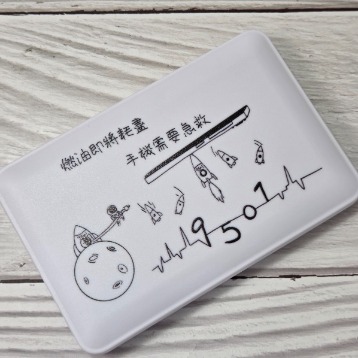 燃油即將耗盡
手機需要急救
9507